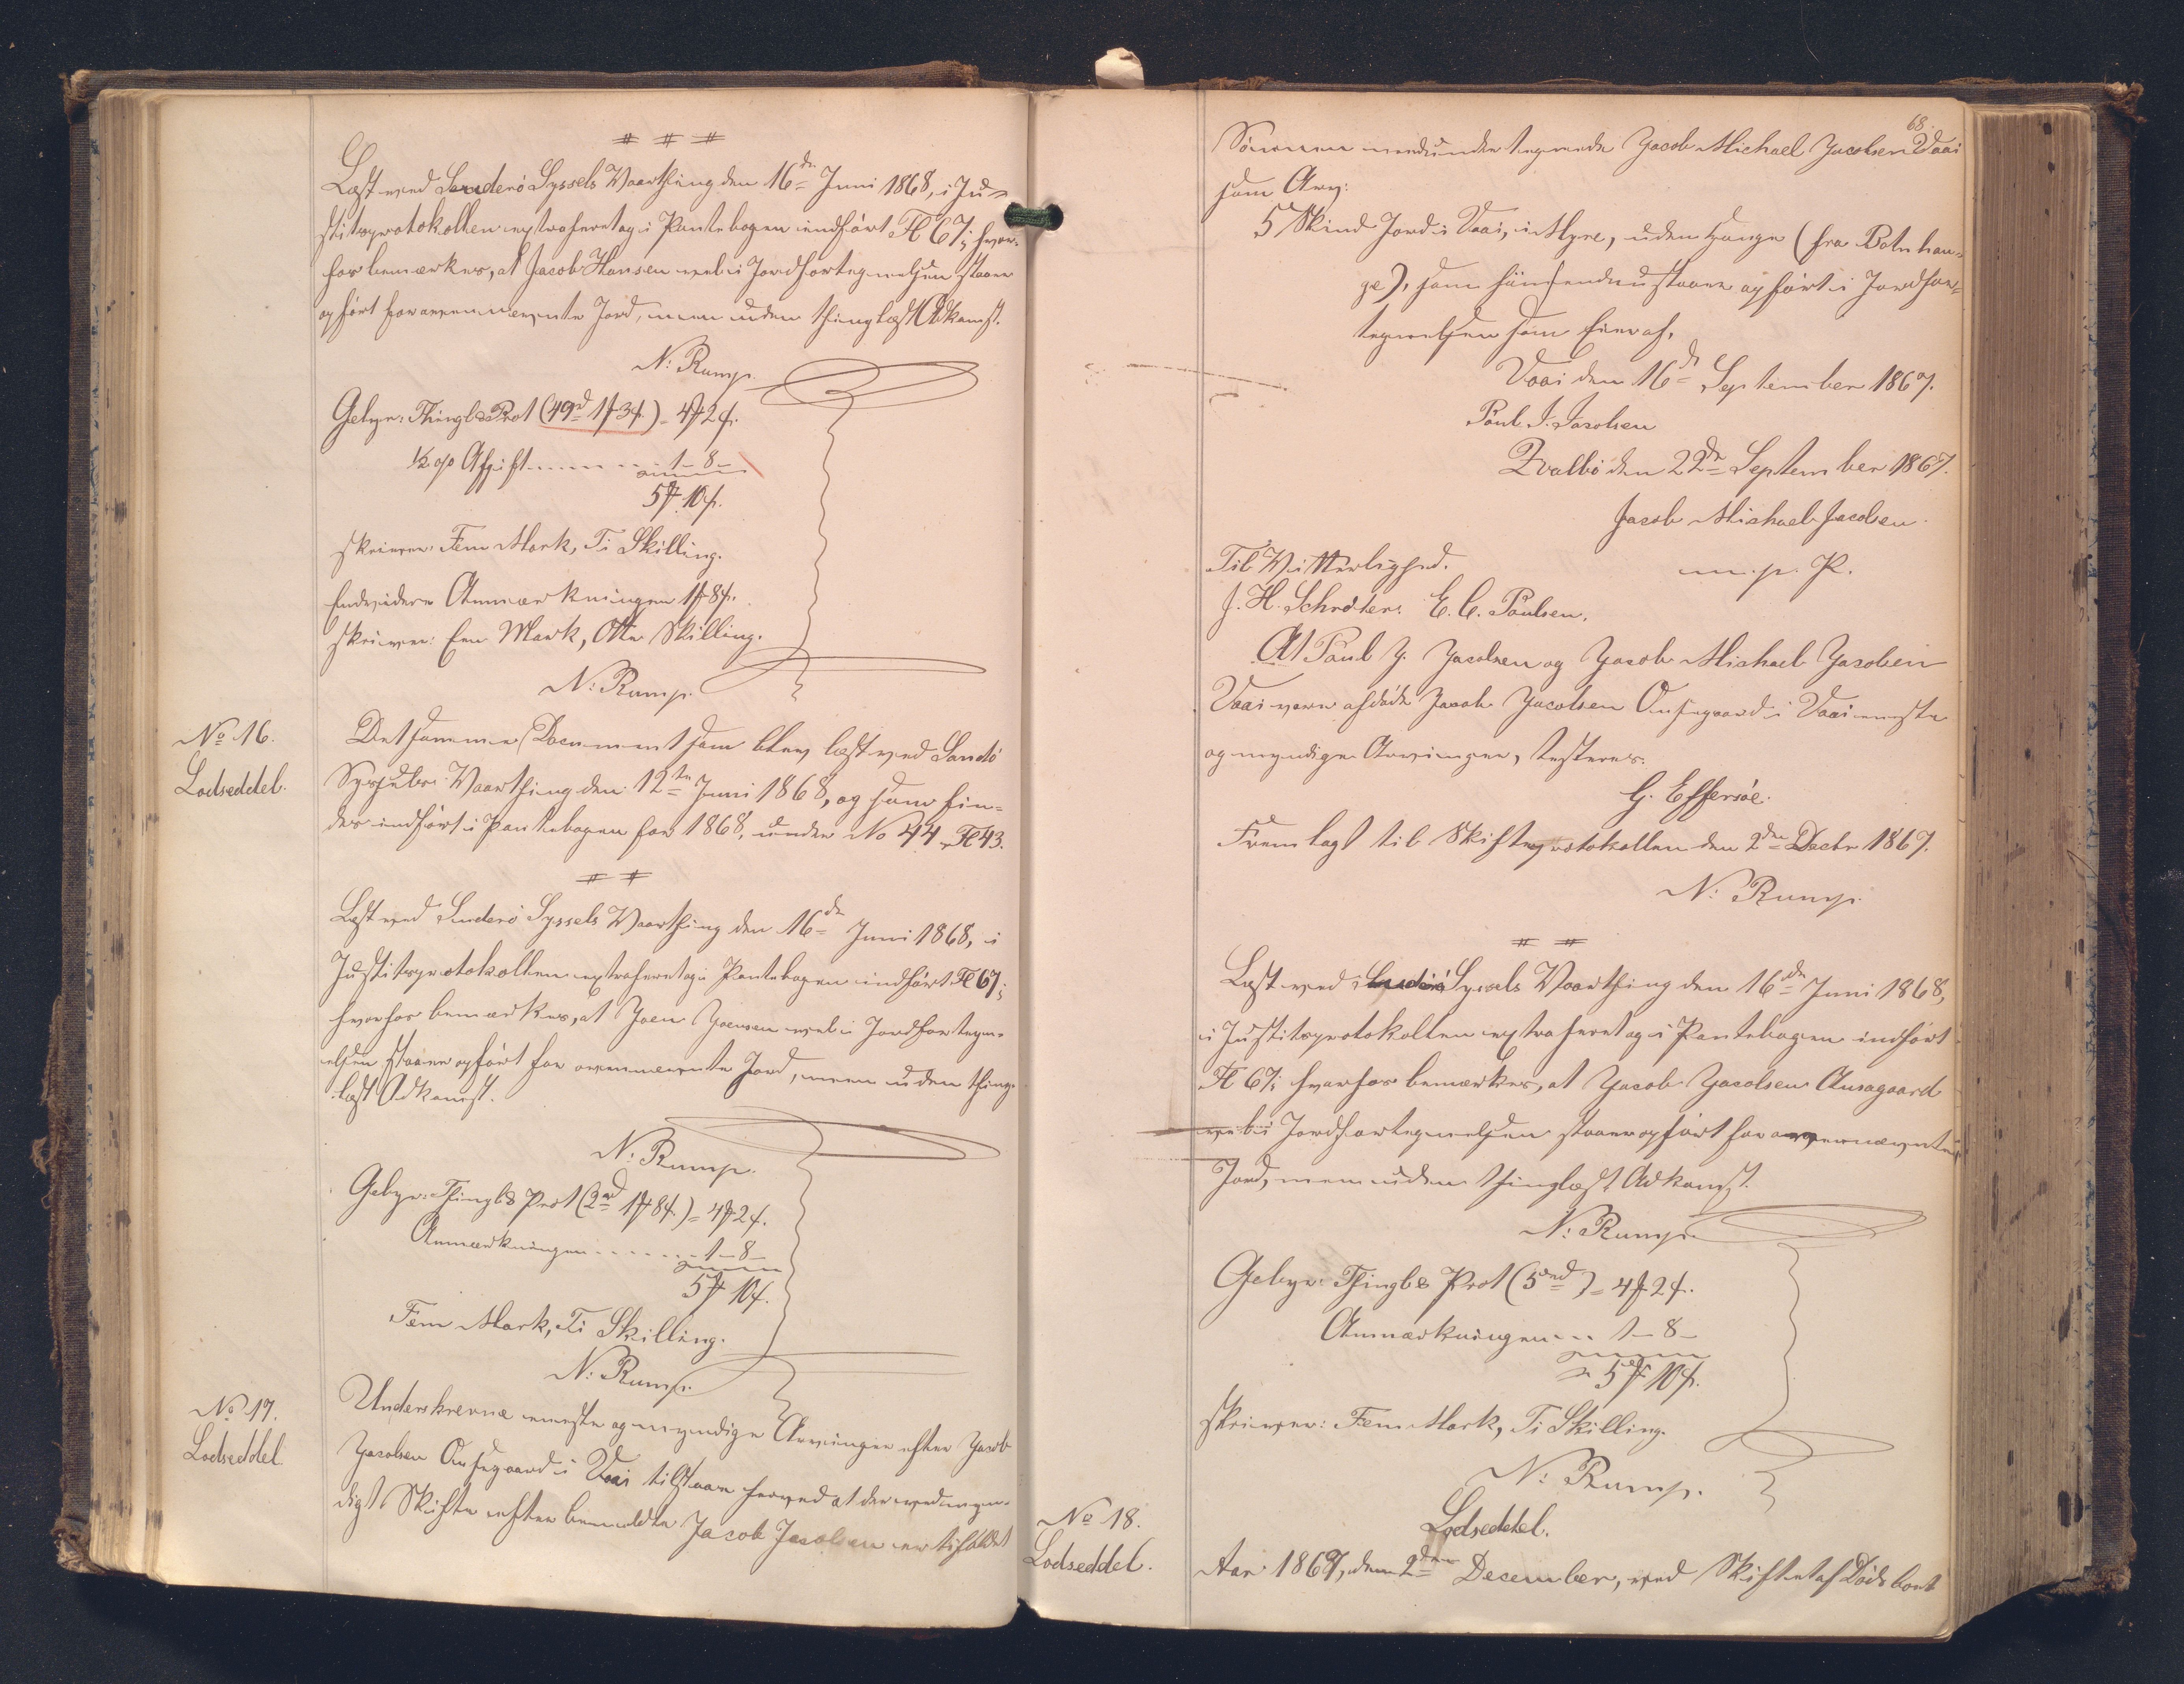 # # #
Læst ved Suderö Syssels Vaarthing den 16de Juni 1868, i Ju-
stitsprotokollen extraheret og i Pantebogen indført Fl 67; hvor-
hos bemærkes, at Jacob Hansen vel i Jordfortegnelsen staaer
opført for ovennævnte Jord, men uden thinglæst Adkomst.
N: Rump.
Gebyr: Thingl & Prot (49rd 1 # 3 ß.) = 4 # 2 ß.
½ o/o Afgift ....... 1 - 8 -
5 # 10 ß.
skriver: Fem Mark, Ti Skilling.
Endvidere Anmærkningen 1 # 8 ß.
skriver: Een Mark, Otte Skilling.
N: Rump.
No 16.
Lodseddel.
Det samme Document som blev læst ved Sandö
Syssels Vaarthing den 12te Juni 1868, og som fin-
des indført i Pantebogen for 1868, under No 44, Fl 43.
# #
Læst ved Suderö Syssels Vaarthing den 16de Juni 1868, i
Justitsprotokollen extraheret og i Pantebogen indført Fl 67;
hvorhos bemærkes, at Joen Joensen vel i Jordfortegn-
elsen staaer opført for ovennævnte Jord, men uden thing-
læst Adkomst.
N: Rump.
Gebyr: Thingl & Prot (2rd 1 # 8 ß.) = 4 # 2 ß.
Anmærkningen ....... 1 - 8 -
5 # 10 ß.
Fem Mark, Ti Skilling.
N: Rump.
No 17.
Lodseddel.
Underskrevne eneste og myndige Arvinger efter Jacob
Jacobsen Onsegaard i Vaai tilstaae herved at der ved myn-
digt Skifte efter bemeldte Jacob Jacobsen er tilfaldet
68.
Sönnen medundertegnede Jacob Michael Jacobsen Vaai
som Arv:
5 Skind Jord i Vaai, i Myre, uden Hauge (fra Botnhau-
ge), som hänhendnu staaer opført i Jordfor-
tegnelsen som Eier af.
Vaai den 16de September 1867.
Poul J. Jacobsen
Qvalbö den 22de September 1867.
Jacob Michael Jacobsen
m. p. P.
Til Vitterlighed.
J. H. Schröter. E. C. Poulsen.
At Poul J. Jacobsen og Jacob Michael Jacobsen
Vaai ere afdöde Jacob Jacobsen Onsegaard i Vaai eneste
og myndige Arvinger, testeres.
G. Effersøe.
Fremlagt til Skifteprotokollen den 2den Decbr 1867.
N: Rump.
# #
Læst ved Suderö Syssels Vaarthing den 16de Juni 1868,
i Justitsprotokollen extraheret og i Pantebogen indført
Fl 67; hvorhos bemærkes, at Jacob Jacobsen Ansagaard
vel i Jordfortegnelsen staaer opført for ovennævnte
Jord, men uden thinglæst Adkomst.
N: Rump.
Gebyr: Thingl & Prot (5 rd) = 4 # 2 ß.
Anmærkningen ... 1 - 8 -
5 # 10 ß.
skriver: Fem Mark, Ti Skilling.
N: Rump.
No 18.
Lodseddel.
Lodseddel.
Aar 1867, den 2den December, ved Skiftet af Dödsboet